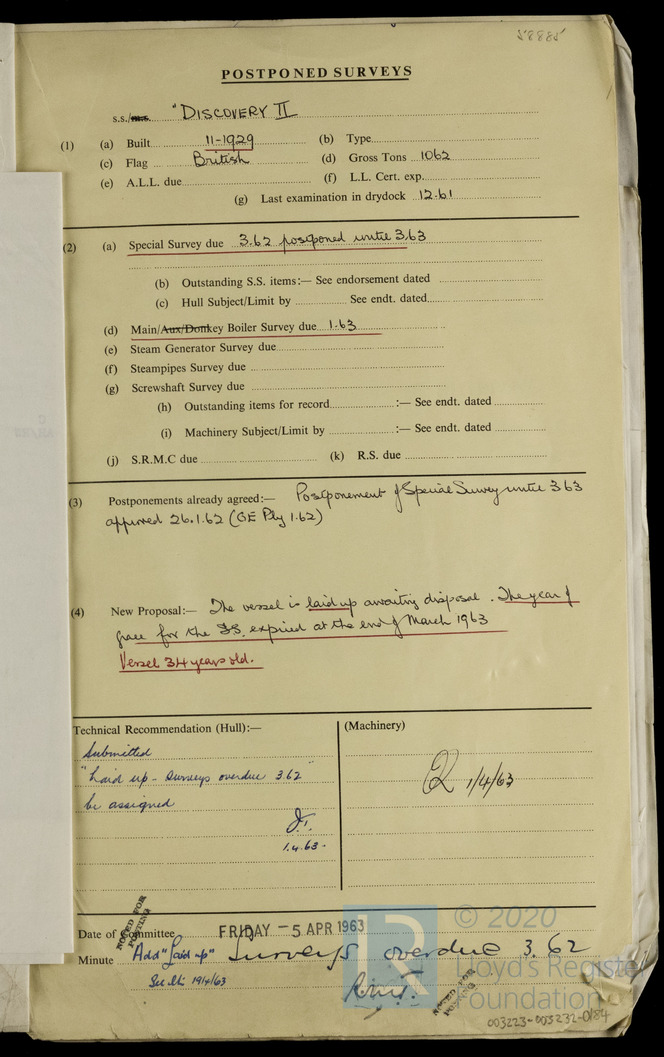 58885
POSTPONED SURVEYS
s.s./m.s. "DISCOVERY II
(1) (a) Built 11-1929 (b) Type
(c) Flag British (d) Gross Tons 1062
(e) A.L.L. due (f) L.L. Cert. exp.
(g) Last examination in drydock 12.61
(2) (a) Special Survey due 3.62 postponed until 3.63
(b) Outstanding S.S. items:— See endorsement dated
(c) Hull Subject/Limit by See endt. dated
(d) Main/Aux/Donkey Boiler Survey due 1.63
(e) Steam Generator Survey due
(f) Steampipes Survey due
(g) Screwshaft Survey due
(h) Outstanding items for record :— See endt. dated
(i) Machinery Subject/Limit by :— See endt. dated
(j) S.R.M.C due (k) R.S. due
(3) Postponements already agreed:— Postponement of Special Survey until 3.63
approved 26.1.62 (GE Ply 1.62)
(4) New Proposal:— The vessel is laid up awaiting disposal. The year of
grace for the SS. expired at the end of March 1963
Vessel 34 years old.
Technical Recommendation (Hull):— (Machinery)
Submitted
"Laid up - Surveys overdue 3.62"
be assigned
1/4/63
1.4.63.
NOTED FOR POSTING
Date of Committee FRIDAY - 5 APR 1963
Minute Add "Laid up" Surveys overdue 3.62
19/4/63
NOTED FOR POSTING
© 2020
Lloyd's Register
Foundation
003223-003232-0184